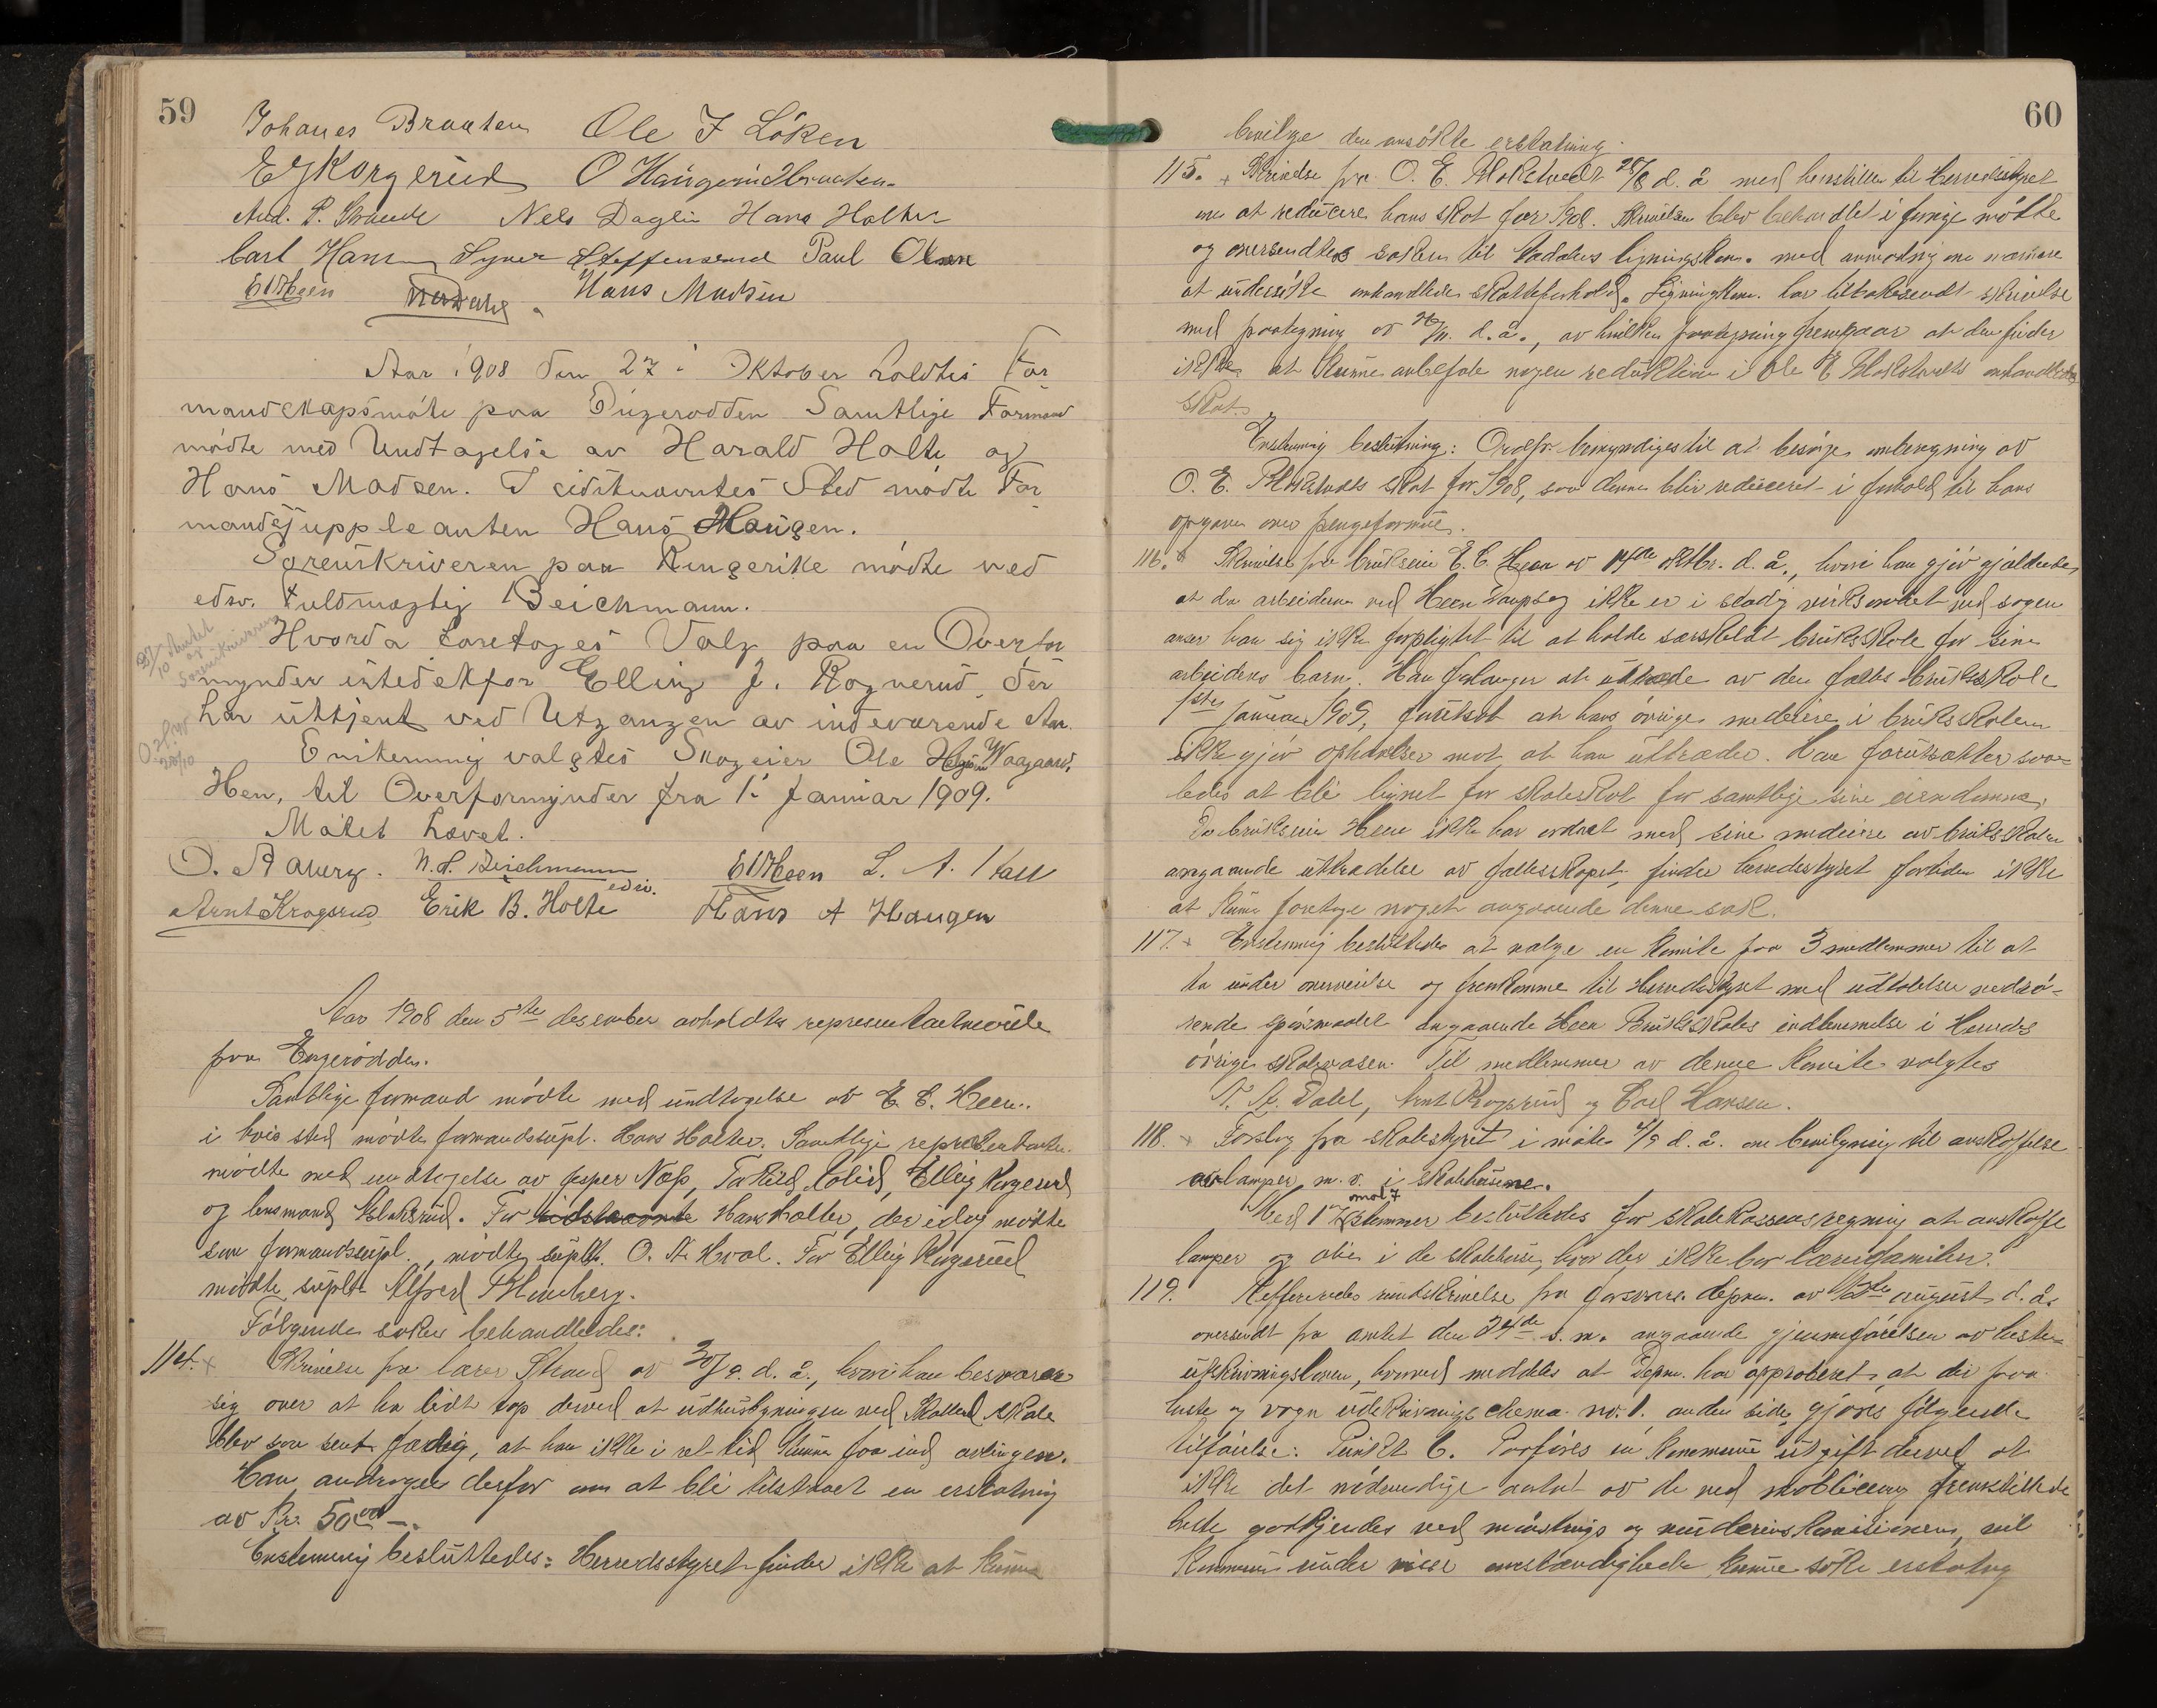 59
Johanes Braaten Ole J Löken
E Skorgerud O Haugerud Braaten
And. P. Strande Nels Daglin Hans Holter
Carl Hansen Syver Steffensrud Paul Olsen
E C Heen Hans Madsen
Aar 1908 den 27' Oktober holdtes For
mandskapsmöte paa Engerodden Samtlige Formænd
mödte med Undtagelse av Harald Holte og
Hans Madsen. I sidstnævntes Sted mödte For
mandssuppleanten Hans Haugen.
Sorenskriveren paa Ringerike mödte ved
edsv. Fuldmægtig Beichmann.
Hvorda foretoges Valg paa en Overfor
mynder istedetfor Elling J. Rognerud der
har uttjent ved Utgangen av indeværende Aar.
27/10 Amtet og Sorenskriveren
O. H. W 28/10
Enstemmig valgtes Skogeier Ole Helgesen Waagaard,
Hen, til Overformynder fra 1' Januar 1909.
Mötet hævet.
O. A N. A. Beichmann edsv. E C Heen L. A.
Arnt Krogsrud Erik B. Holte Hans A Haugen
Aar 1908 den 5te desember avholdtes representantmöte
paa Engerodden.
Samtlige formænd mödte med undtagelse av E. C. Heen.
i hvis sted mödte formandssupl. Hans Holter. Samtlige representanter
mödte med undtagelse av Jesper Næs, Torkild Lolid, Elling Rogerud
og lensmand Kloksrud. For sidstnævnte Hans Holter, der idag mödte
som formandssupl., mödte suplt. O. A. Hval. For Elling Rogerud
mödte suplt Alfred
Följende saker behandledes:
114. x Skrivelse fra lærer Strand av 30/9. d. å., hvori han besværer
sig over at ha lidt tap derved at udhusbygningen ved skole
blev saa sent færdig, at han ikke i ret tid kunne faa ind avlingen.
Han androger derfor om at bli tilstaaet en erstatning
av Kr. 50.00 -.
Enstemmig besluttedes: Herredsstyret finder ikke at kunne
60
bevilge den ansökte erstatning.
115. x Skrivelse fra O. E. 28/8 d. å med henstillen til Herredsstyret
om at reducere hans skat for 1908. Skrivelsen blev behandlet i forrige möte
og oversendtes saken til Aadalens ligningskom. med anmodning om nærmere
at undersöke omhandledes skatteforhold. Ligningskom. har tilbakesendt skrivelse
med paategning av d. å., av hvilken paategning fremgaar at den finder
ikke at kunne anbefale nogen reduktion i Ole E. omhandlede
skat.
Enstemmig beslutning: Ordf. bemyndiges til at besörge omberegning av
O. E. skat for 1908, saa denne blir reduceret i forhold til hans
opgaver over pengeformue.
116. x Skrivelse fra brukseier E. C. Heen av 14de oktbr. d. å., hvori han gjör gjældende,
at da arbeiderne ved Heen Dampsag ikke er i stadig virksomhet ved sagen
anser han sig ikke forpligtet til at holde særskildt bruksskole for sine
arbeideres barn. Han forlanger at uttræde av den fælles bruksskole
1ste januar 1909, forutsat at hans övrige medeiere i bruksskolen
ikke gjör ophævelser mot at han uttræder. Han forutsætter saa-
ledes at bli lignet for skoleskat for samtlige sine eiendomme.
Da brukseier Heen ikke har ordnet med sine medeiere av bruksskolen
angaaende uttrædelse av fællesskapet, finder herredsstyret fortiden ikke
at kunne foretage noget angaaende denne sak.
117. x Enstemmig besluttedes at vælge en komite paa 3 medlemmer til at
ta under overveielse og fremkomme til Herredsstyret med udtalelse vedrö-
rende spörsmaalet angaaende Heen Bruksskoles indlemmelse i Herredets
övrige skolevæsen. Til medlemmer av denne komite valgtes
Dahl, Arnt Krogsrud og Carl Hansen.
118. x Forslag fra skolestyret i möte 4/9 d. å. om bevilgning til anskaffelse
av lamper m. v. i skolehusene.
Med 17 mot 7 stemmer besluttedes for skolekassens regning at anskaffe
lamper og olie i de skolehuse, hvor der ikke bor lærerfamilier.
119. Reffereredes rundskrivelse fra forsvars depm. av august d. å.
oversendt fra amtet den 24de s. m. angaaende gjennemförelsen av heste-
utskrivningsloven, hvorved meddeles at Depm. har approberet, at der paa
heste og vogn utskrivnings chema no. 1. anden side gjöres fölgende
tilföielse: Punkt 6. Paaföres en kommune utgift derved at
ikke det nödvendige antal av de ved mobilisering fremstillede
heste godkjendes ved mönstrings og vurderingskomisionen, vil
Kommunen under visse omstændigheder kunne söke erstatning